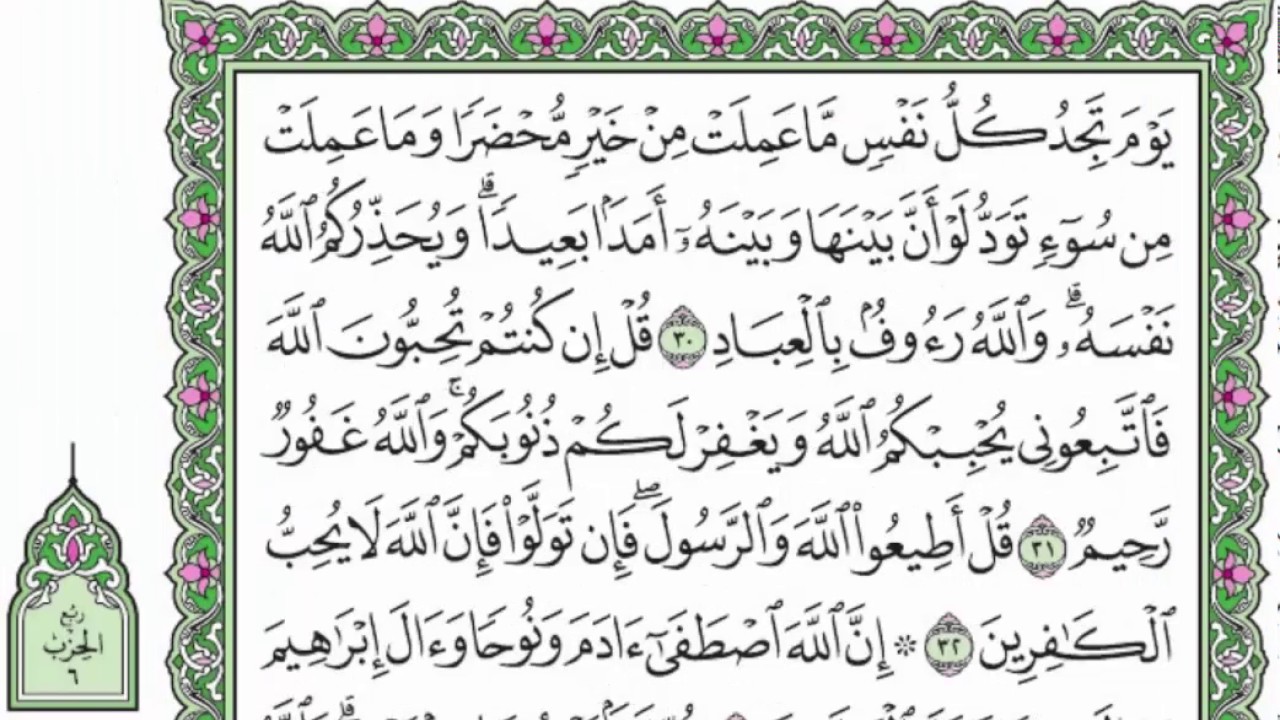 يَوْمَ تَجِدُ كُلُّ نَفْسٍ مَّا عَمِلَتْ مِنْ خَيْرٍ مُّحْضَرًا وَمَا عَمِلَتْ
مِن سُوٓءٍ تَوَدُّ لَوْ أَنَّ بَيْنَهَا وَبَيْنَهُۥٓ أَمَدًۢا بَعِيدًا ۗ وَيُحَذِّرُكُمُ ٱللَّهُ
نَفْسَهُۥ ۗ وَٱللَّهُ رَءُوفٌۢ بِٱلْعِبَادِ ٣٠ قُلْ إِن كُنتُمْ تُحِبُّونَ ٱللَّهَ
فَٱتَّبِعُونِى يُحْبِبْكُمُ ٱللَّهُ وَيَغْفِرْ لَكُمْ ذُنُوبَكُمْ ۚ وَٱللَّهُ غَفُورٌ
رَّحِيمٌ ٣١ قُلْ أَطِيعُوا۟ ٱللَّهَ وَٱلرَّسُولَ ۖ فَإِن تَوَلَّوْا۟ فَإِنَّ ٱللَّهَ لَا يُحِبُّ
ٱلْكَٰفِرِينَ ٣٢ ۞ إِنَّ ٱللَّهَ ٱصْطَفَىٰٓ ءَادَمَ وَنُوحًا وَءَالَ إِبْرَٰهِيمَ
رُبْع
الحِزْب
٦